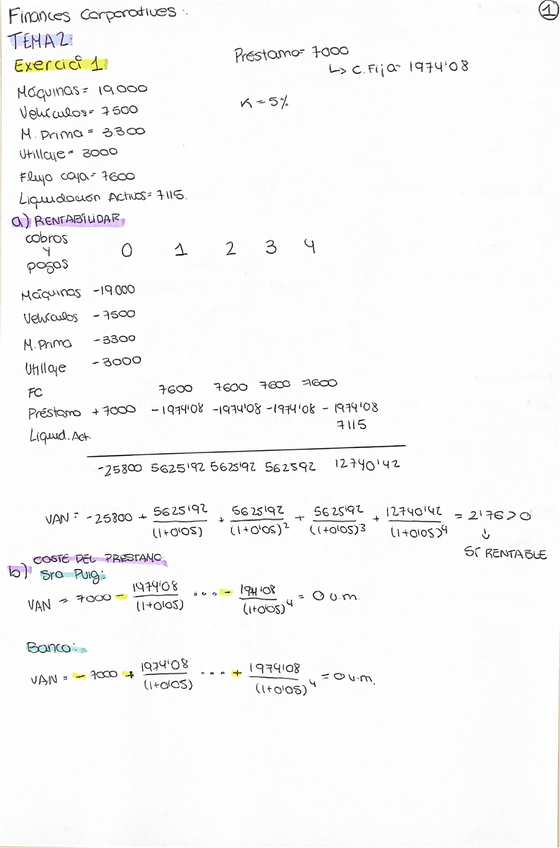 Finances Corporatives:
1
TEMA 2
Exercici 1
Préstamo= 7000
↳ C. Fija= 1974'08
Máquinas= 19,000
K = 5%
Vehículos= 7500
M. Prima = 3300
Utillaje= 3000
Flujo caja= 7600
Liquidación Activos= 7115.
a) RENTABILIDAD
cobros y pagos 0 1 2 3 4
Máquinas -19000
Vehículos -7500
M. Prima -3300
Utillaje -3000
FC 7600 7600 7600 7600
Préstamo +7000 -1974'08 -1974'08 -1974'08 -1974'08
Liquid. Act 7115
-25800 5625'92 5625'92 562592 12740'42
VAN = -25800 + 5625'92/(1+0'05) + 5625'92/(1+0'05)² + 5625'92/(1+0'05)³ + 12740'42/(1+0'05)⁴ = 2'76>0
↓
SÍ RENTABLE
COSTE DEL PRESTAMO
b) Sra Puig:
VAN = 7000 - 1974'08/(1+0'05) ... - 1974'08/(1+0'05)⁴ = 0 u.m.
Banco:
VAN = - 7000 + 1974'08/(1+0'05) ... + 1974'08/(1+0'05)⁴ = 0 u.m.